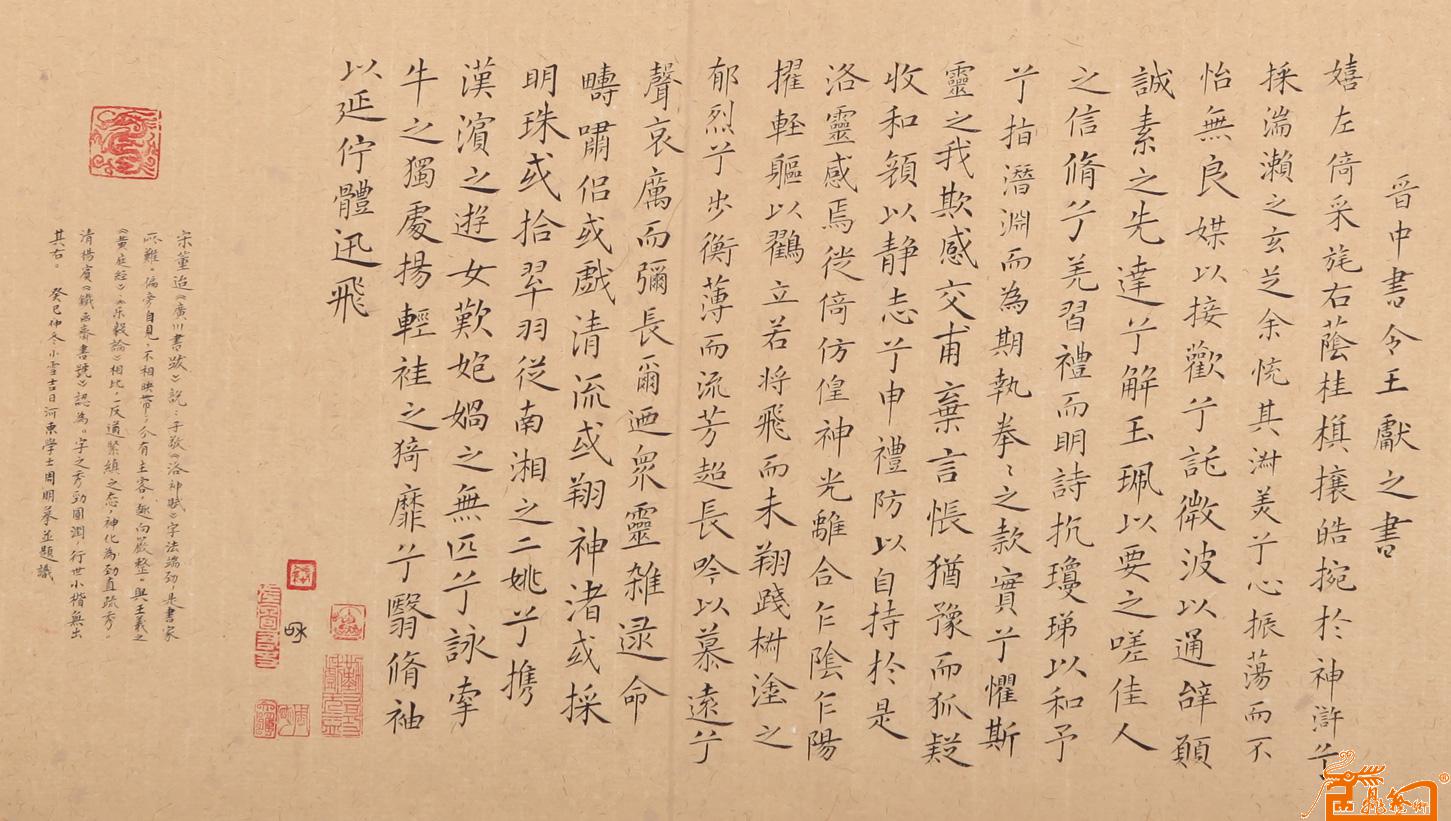 晉中書令王獻之書
嬉左倚采旄右蔭桂槙攘皓捥於神滸兮
採湍瀨之玄芝余悅其淋美兮心振蕩而不
怡無良媒以接歡兮託微波以通辝願
誠素之先達兮解玉珮以要之嗟佳人
之信脩兮羌習禮而明詩抗瓊珶以和予
兮指潛淵而為期執拳〻之款實兮懼斯
靈之我欺感交甫棄言悵猶豫而狐疑
收和顏以静志兮申禮防以自持於是
洛靈感焉徙倚仿偟神光離合乍陰乍陽
擢軽軀以鸖立若将飛而未翔踐椒塗之
郁烈兮步衡薄而流芳超長吟以慕遠兮
聲哀厲而彌長爾迺衆靈雑遝命
疇嘯侣或戲清流或翔神渚或採
明珠或拾翠羽從南湘之二姚兮携
漢濱之遊女歎媩媧之無匹兮詠牽
牛之獨處揚輕袿之猗靡兮翳脩袖
以延佇體迅飛
宋董逌《廣川書跋》説：子敬《洛神賦》字法端劲是書家
所難。偏旁自見，不相映帶，分有主客，趣向嚴整。與王羲之
《黄庭經》《乐毅論》相比，一反遒緊縝之态，神化為劲直疏秀。
清楊賓《鐵函齋書跋》認為。字之秀勁圓潤，行世小楷無出
其右。 癸巳仲冬小雪吉日河東學士周明摹並題識